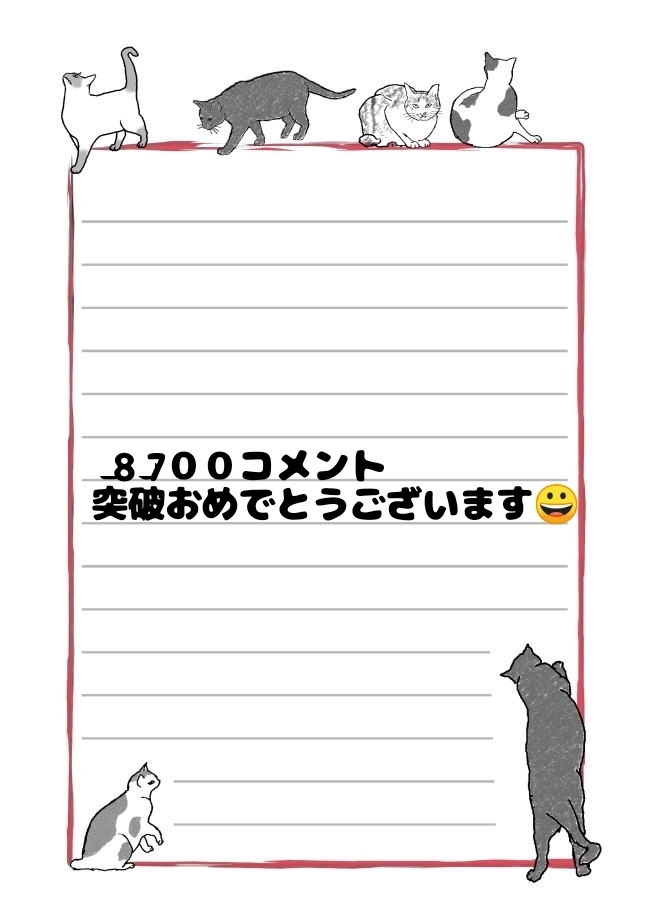 ８７００コメント
突破おめでとうございます😀